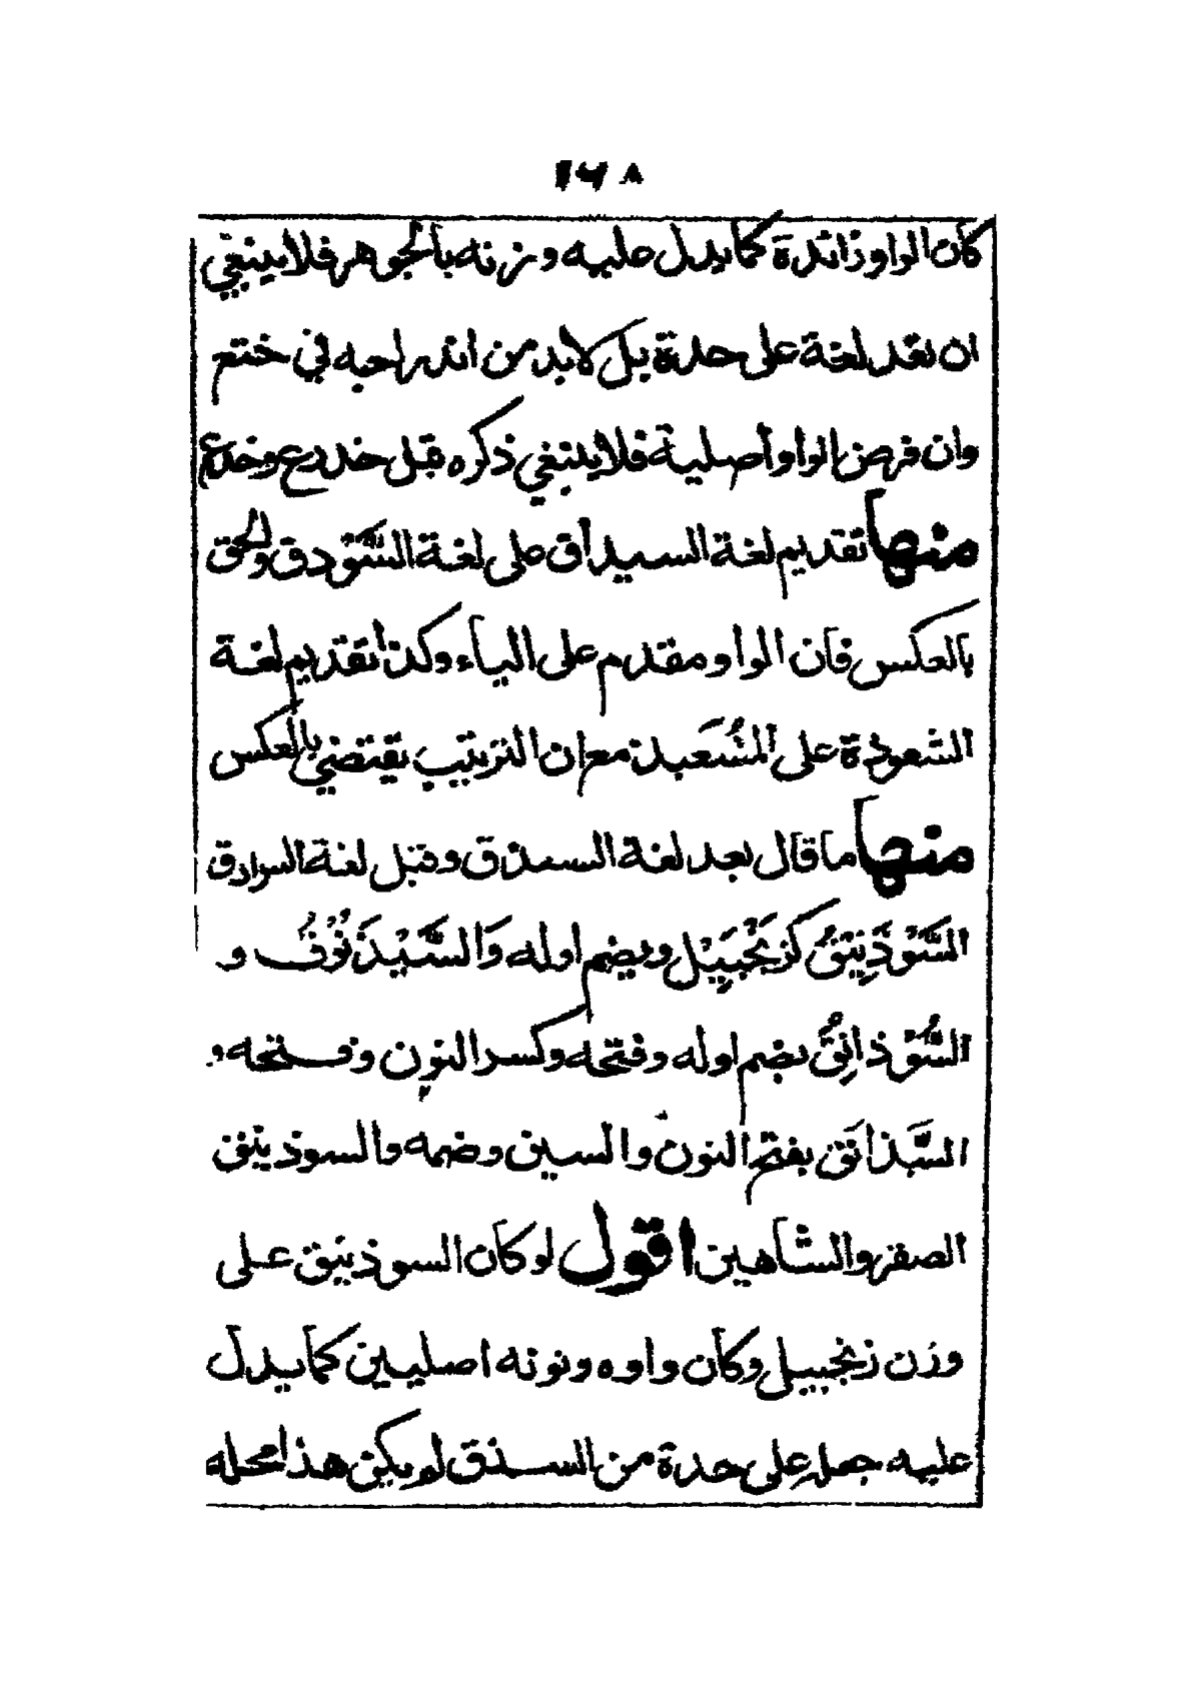 ١٦٨
كان الواو زائدة كما يدل عليه وزنه بالجوهر فلا ينبغي
ان تعد لغة على حدة بل لا بد من اندراجه في ختع
وان فرض الواو أصلية فلا ينبغي ذكره قبل خدرع وخدع
منها تقديم لغة السيداق على لغة السَّوْدق والحق
بالعكس فان الواو مقدم على الياء وكذا تقديم لغة
الشعوذة على المُشَعبِذ مع ان الترتيب يقتضي بالعكس
منها ما قال بعد لغة السمذق وقبل لغة السرادق
السَّوْذَنِيْقُ كزنجَبِيْل ويضم اوله وَالسَّيْذَنُوْقُ و
السُّوْذانِقُ بضم اوله وفتحه وكسر النون وفتحه و
السَّيذانَق بفتح النون والسين وضمه والسوذينق
الصقر والشاهين اقول لو كان السوذنيق على
وزن زنجبيل وكان واوه ونونه اصليين كما يدل
عليه جعله على حدة من السذق لم يكن هذا محله